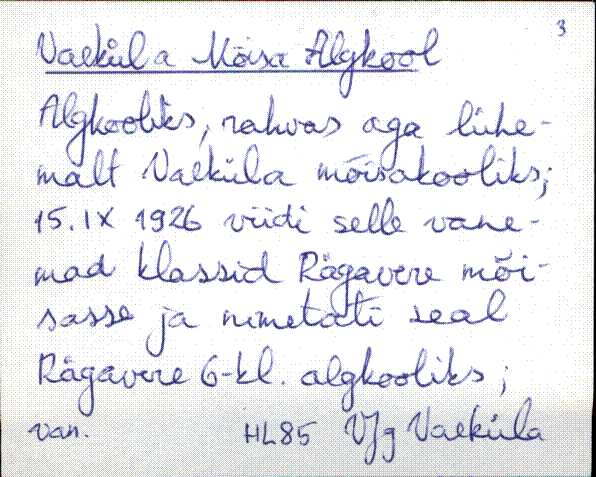 3
Vaeküla Mõisa Algkool
Algkooliks, rahvas aga lühe-
malt Vaeküla mõisakooliks;
15. IX 1926 viidi selle vane-
mad klassid Rägavere mõi-
sasse ja nimetati seal
Rägavere 6-kl. algkooliks;
van. HL85 VJg Vaeküla